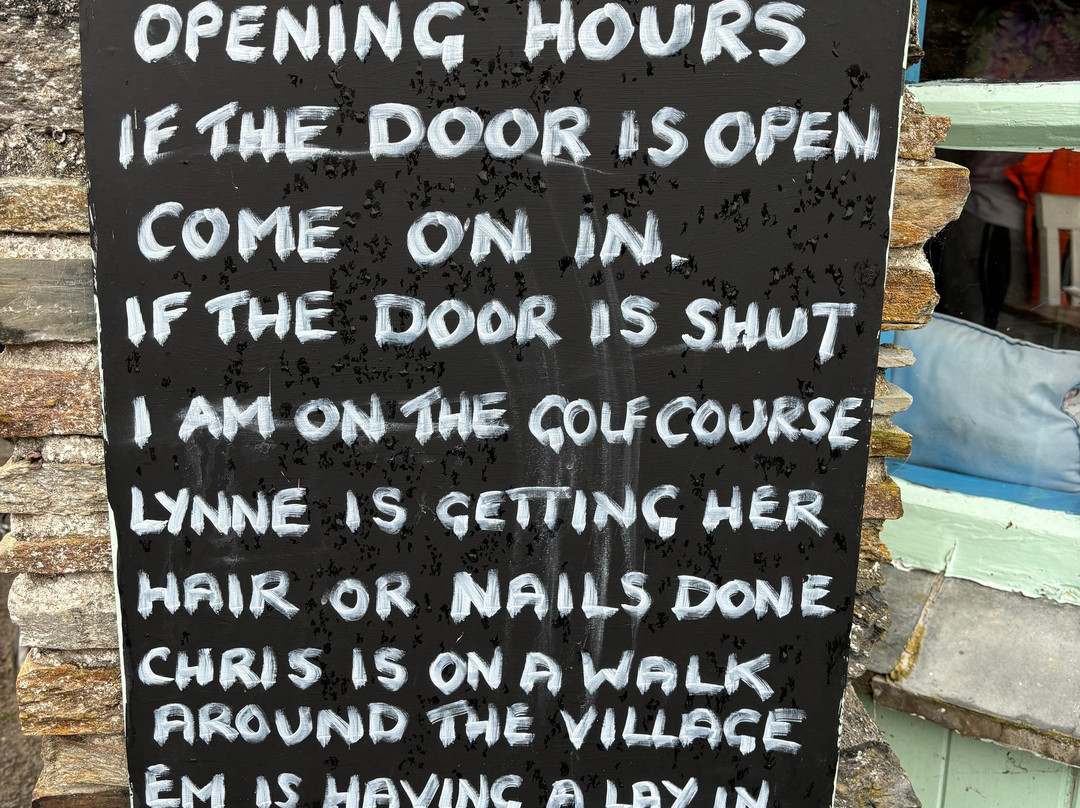 OPENING HOURS
IF THE DOOR IS OPEN
COME ON IN.
IF THE DOOR IS SHUT
I AM ON THE GOLF COURSE
LYNNE IS GETTING HER
HAIR OR NAILS DONE
CHRIS IS ON A WALK
AROUND THE VILLAGE
EM IS HAVING A LAY IN